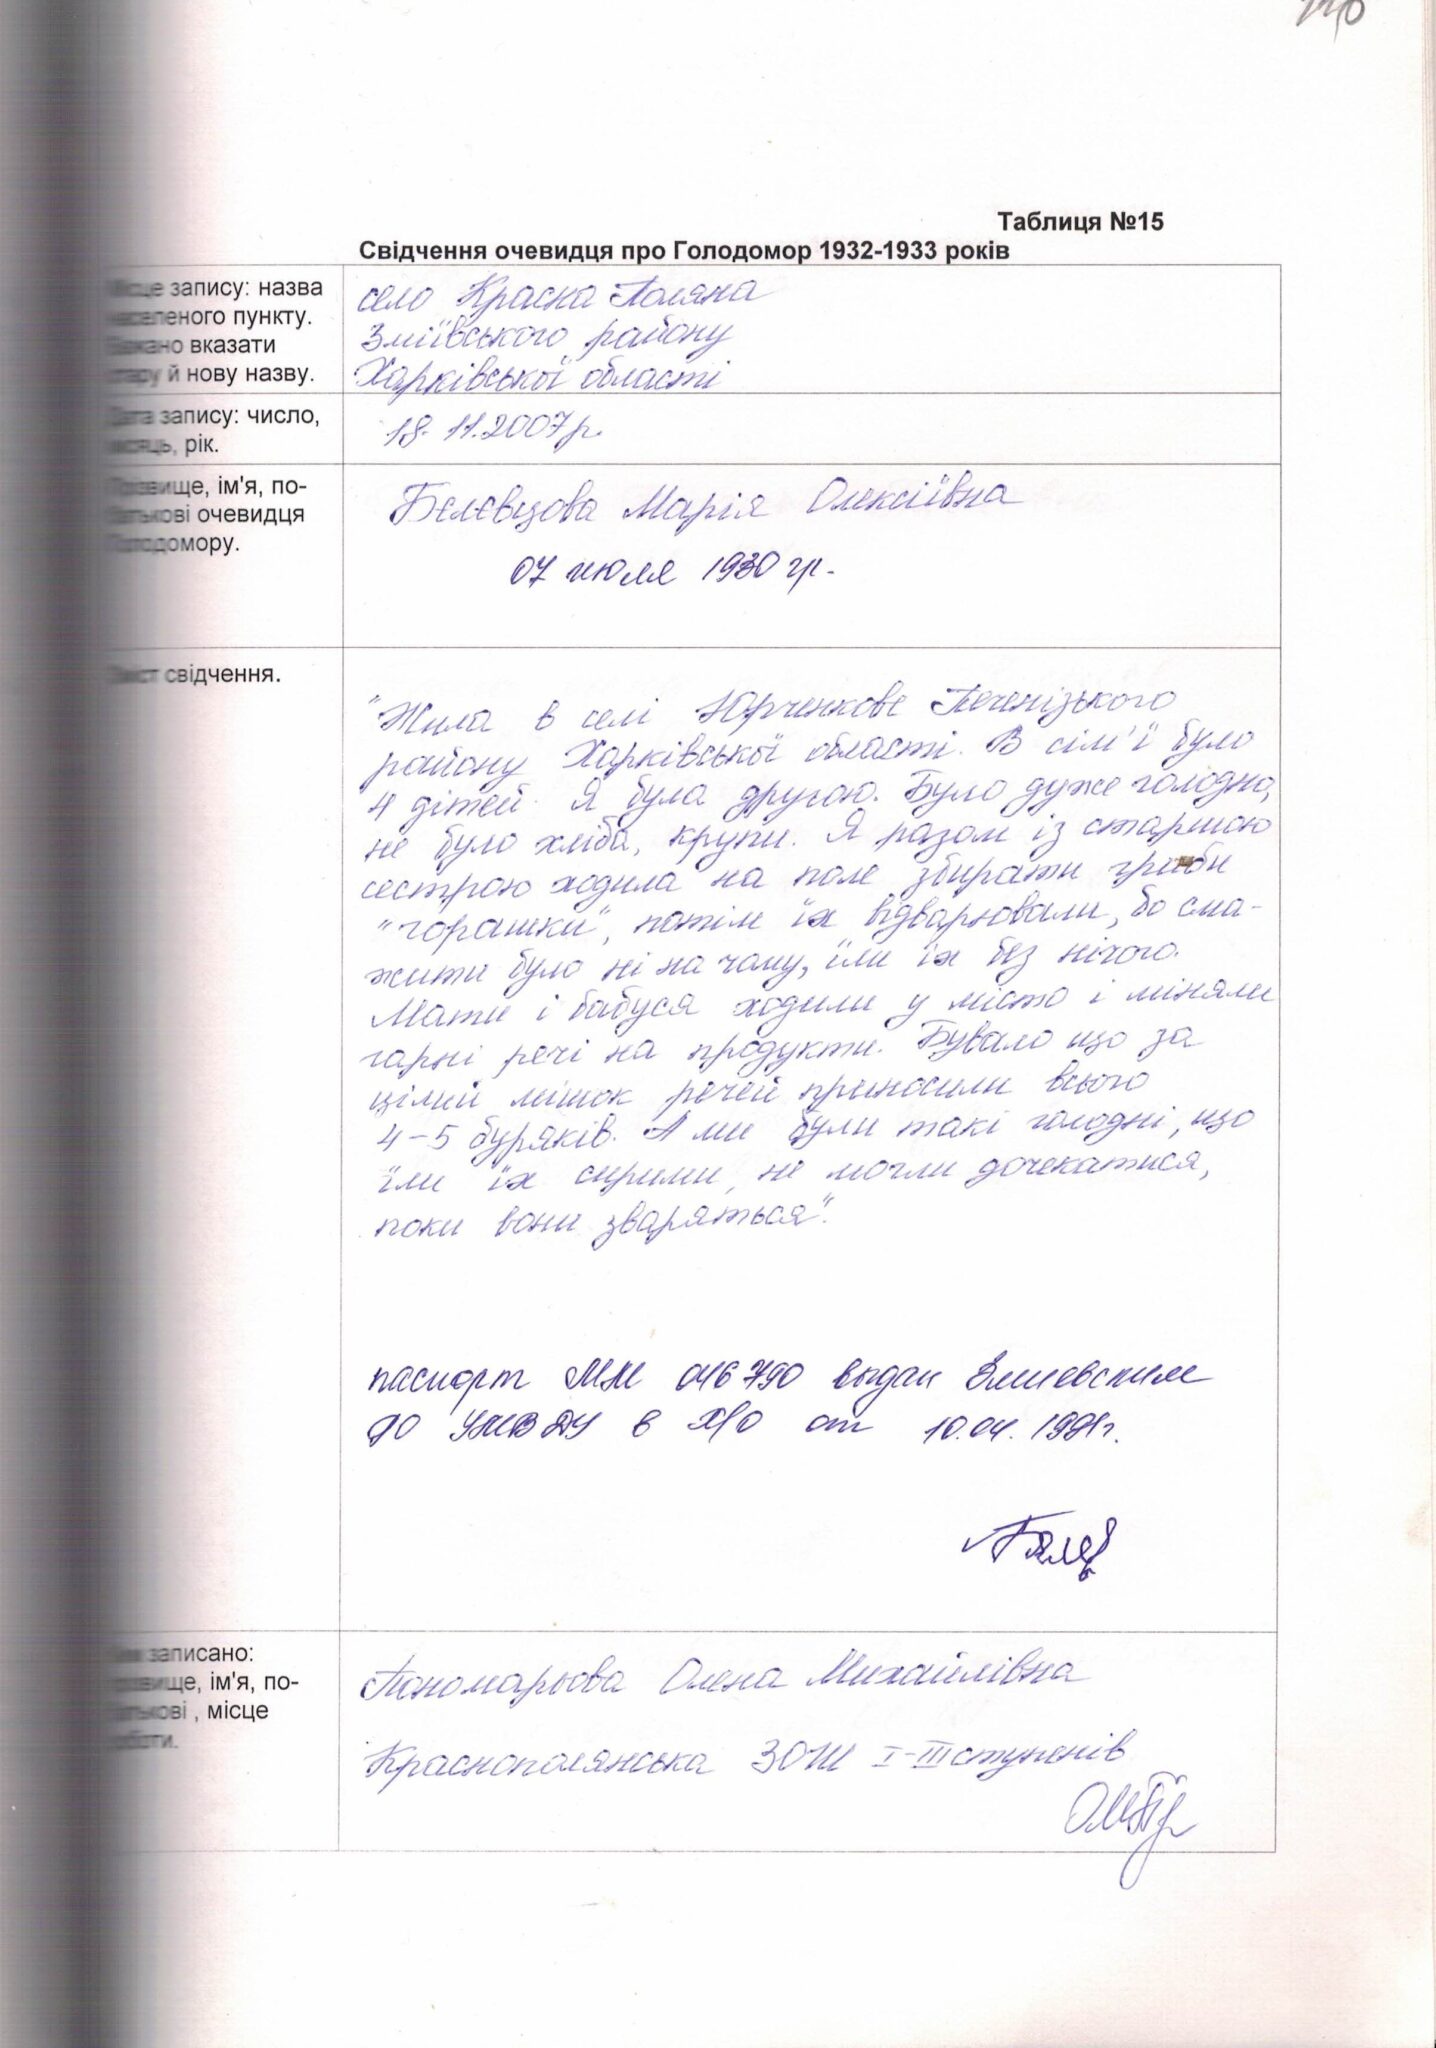 Таблиця №15
Свідчення очевидця про Голодомор 1932-1933 років
Місце запису: назва
населеного пункту.
Бажано вказати
стару й нову назву.
село Красна Поляна
Зміївського району
Харківської області
Дата запису: число,
місяць, рік.
18.11.2007р.
Прізвище, ім'я, по-
батькові очевидця
Голодомору.
Бєлєвцова Марія Олексіївна
07 июля 1930 гр.
Зміст свідчення.
"Жила в селі Юрченкове Печенізького
району Харківської області. В сім'ї було
4 дітей. Я була другою. Було дуже голодно,
не було хліба, крупи. Я разом із старшою
сестрою ходила на поле збирати гриби
"горашки", потім їх відварювали, бо сма-
жити було ні на чому, їли їх без нічого.
Мати і бабуся ходили у місто і міняли
гарні речі на продукти. Бувало що за
цілий мішок речей приносили всього
4-5 буряків. А ми були такі голодні, що
їли їх сирими, не могли дочекатися,
поки вони зваряться".
паспорт МН 046790 выдан Змиевским
РО УМВДУ в Х/О от 10.04.
Ким записано:
Прізвище, ім'я, по-
батькові , місце
роботи.
Пономарьова Олена Михайлівна
Краснополянська ЗОШ І-ІІІ ступенів